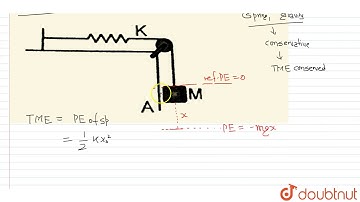 (Spring, Gravity
↓
conservative
↓
TME conserved
K
ref. PE = 0
A
M
x
PE = -mgx
TME = PE of sp
= 1/2 Kx₀²
doubtnut